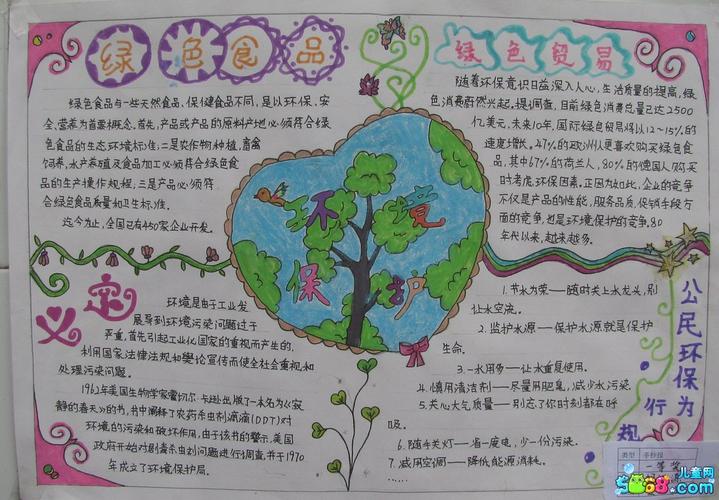 绿色食品
绿色食品与一些天然食品、保健食品不同,是以环保、安
全、营养为首要概念。首先,产品或产品的原料产地必须符合绿
色食品的生态环境标准;二是农作物种植,畜禽
饲养,水产养殖及食品加工必须符合绿色食
品的生产操作规程,三是产品必须符
合绿色食品质量和卫生标准。
迄今为止,全国已有450家企业开发。
绿色贸易
随着环保意识日益深入人心,生活质量的提高,绿
色消费蔚然兴起。据调查,目前绿色消费总量已达2500
亿美元,未来10年,国际绿色贸易将以12~15%的
速度增长。47%的欧州人更喜欢购买绿色食
品,其中67%的荷兰人,80%的德国人购买
时考虑环保因素。正因为如此,企业的竞争
不仅是产品的性能,服务品质,促销手段方
面的竞争,也是环境保护的竞争。80
年代以来,越来越多。
环境
保护
定义
环境是由于工业发
展导到环境污染问题过于
严重,首先引起工业化国家的重视而产生的,
利用国家法律法规和舆论宣传而使全社会重视和
处理污染问题。
1962年美国生物学家蕾切尔·卡逊出版了一本名为《寂
静的春天》的书,书中阐释了农药杀虫剂滴滴(DDT)对
环境的污染和破坏作用,由于该书的警示,美国
政府开始对剧毒杀虫剂问题进行调查,并于1970
年成立了环境保护局。
1.节水为荣——随时关上水龙头,别
让水空流。
2.监护水源——保护水源就是保护
生命。
3.一水用多——让水重复使用。
4.慎用清洁剂——尽量用肥皂,减少水污染
5.关心大气质量——别忘了你时刻都在呼
吸。
6.随手关灯——省一度电,少一份污染。
7.减用空调——降低能源消耗。
公民环保为
行规
类型 手抄报
一等奖
5068.com
儿童网